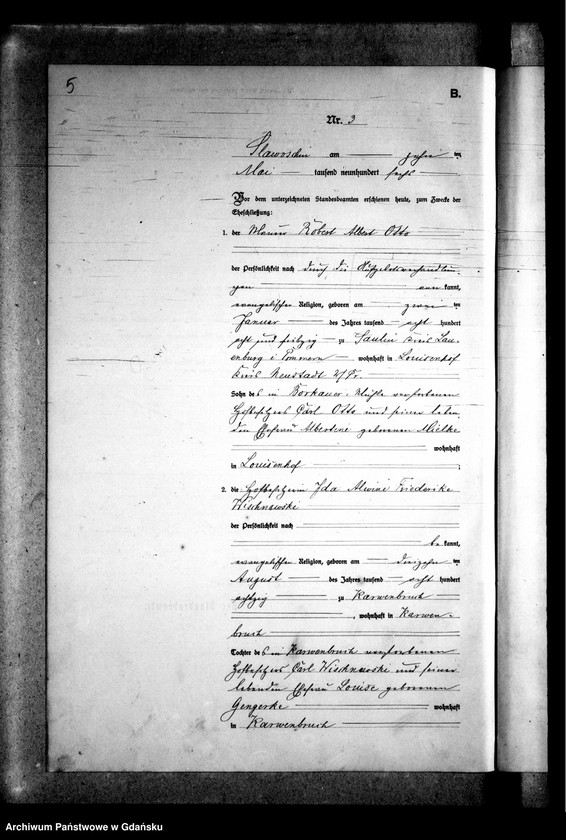 5
B.
Nr. 3
Slawoschin am zehn ten
Mai tausend neunhundert sechs
Vor dem unterzeichneten Standesbeamten erschienen heute, zum Zwecke der
Eheschließung:
1. der Maurer Robert Albert Otto
der Persönlichkeit nach durch die Aufgebotsverhandlun-
gen kannt,
evangelischer Religion, geboren am zwei ten
Januar des Jahres tausend acht hundert
acht und zu Saulin Kreis Lau-
enburg i Pommern wohnhaft in Louisenhof
Kreis Neustadt W/Pr.
Sohn des in Borkauer-Mühle verstorbenen
Hofbesitzers Carl Otto und seiner leben-
den Ehefrau Albertine geborenen Mielke
wohnhaft
in Louisenhof
2. die Hofbesitzerin Ida Alwine Friederike
Wischnewske
der Persönlichkeit nach
be kannt,
evangelischen Religion, geboren am dreizehn ten
August des Jahres tausend acht hundert
achtzig zu Karwenbruch
, wohnhaft in Karwen-
bruch
Tochter des in Karwenbruch verstorbenen
Hofbesitzers Carl Wischnewske und seiner
lebenden Ehefrau Louise geborenen
Gengerke wohnhaft
in Karwenbruch
Archiwum Państwowe w Gdańsku